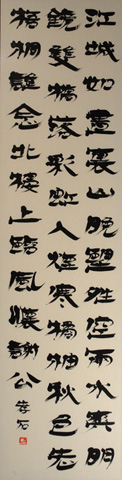 江城如畫裏山晚望晴空雨水夾明
鏡雙橋落彩虹人煙寒橘柚秋色老
梧桐誰念北樓上臨風懷謝公